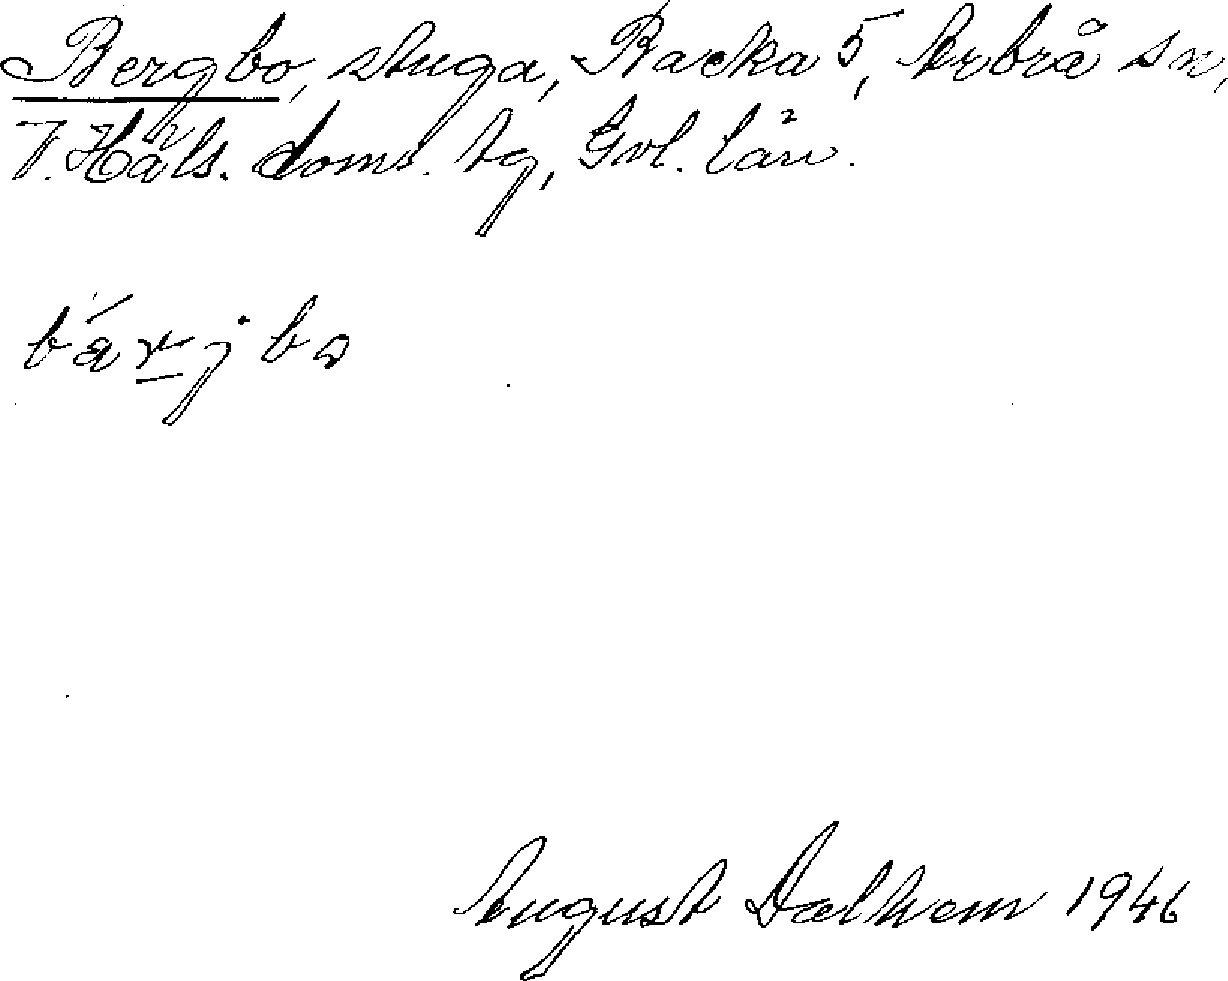 Bergbo, stuga, Backa 5, Arbrå sn,
V. Häls. doms. tg, Gvl. län.
bárjbo
August Dalhem 1946